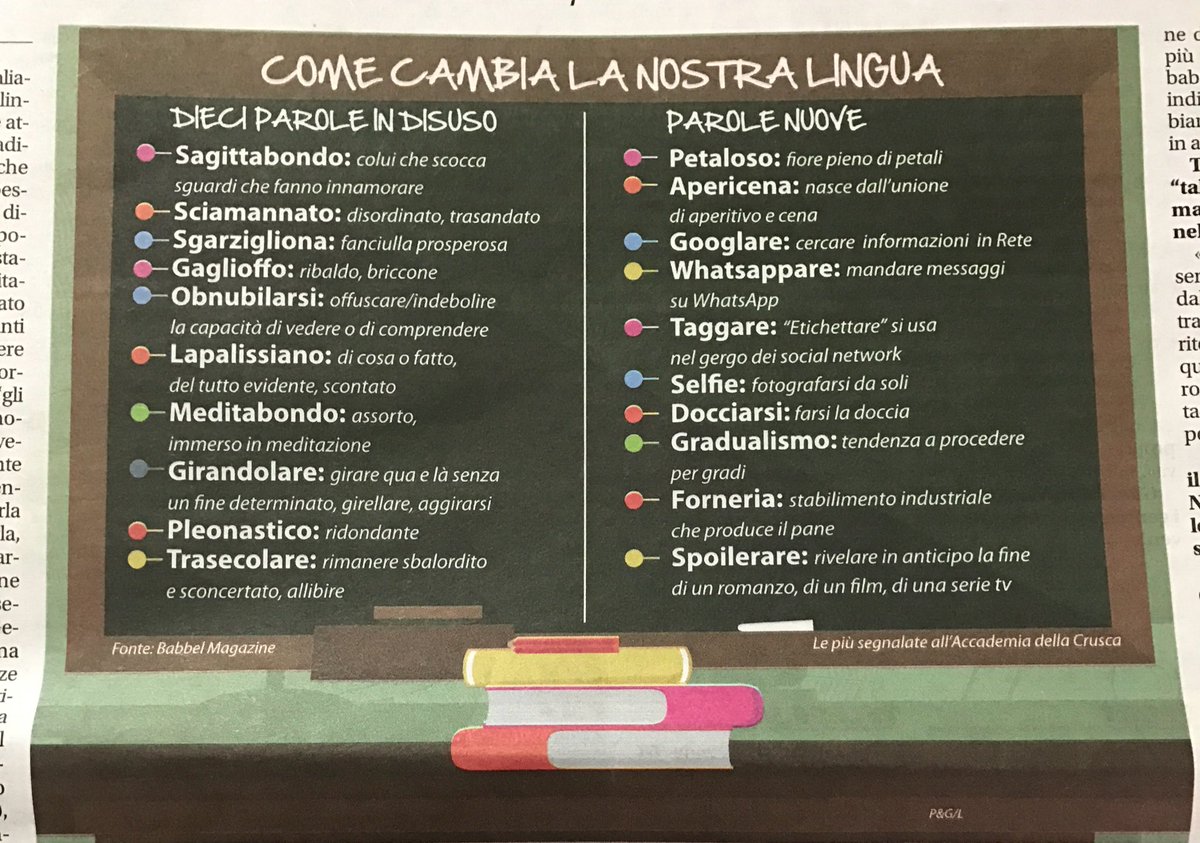 COME CAMBIA LA NOSTRA LINGUA
DIECI PAROLE IN DISUSO
Sagittabondo: colui che scocca
sguardi che fanno innamorare
Sciamannato: disordinato, trasandato
Sgarzigliona: fanciulla prosperosa
Gaglioffo: ribaldo, briccone
Obnubilarsi: offuscare/indebolire
la capacità di vedere o di comprendere
Lapalissiano: di cosa o fatto,
del tutto evidente, scontato
Meditabondo: assorto,
immerso in meditazione
Girandolare: girare qua e là senza
un fine determinato, girellare, aggirarsi
Pleonastico: ridondante
Trasecolare: rimanere sbalordito
e sconcertato, allibire
Fonte: Babbel Magazine
PAROLE NUOVE
Petaloso: fiore pieno di petali
Apericena: nasce dall'unione
di aperitivo e cena
Googlare: cercare informazioni in Rete
Whatsappare: mandare messaggi
su WhatsApp
Taggare: "Etichettare" si usa
nel gergo dei social network
Selfie: fotografarsi da soli
Docciarsi: farsi la doccia
Gradualismo: tendenza a procedere
per gradi
Forneria: stabilimento industriale
che produce il pane
Spoilerare: rivelare in anticipo la fine
di un romanzo, di un film, di una serie tv
Le più segnalate all'Accademia della Crusca
P&G/L